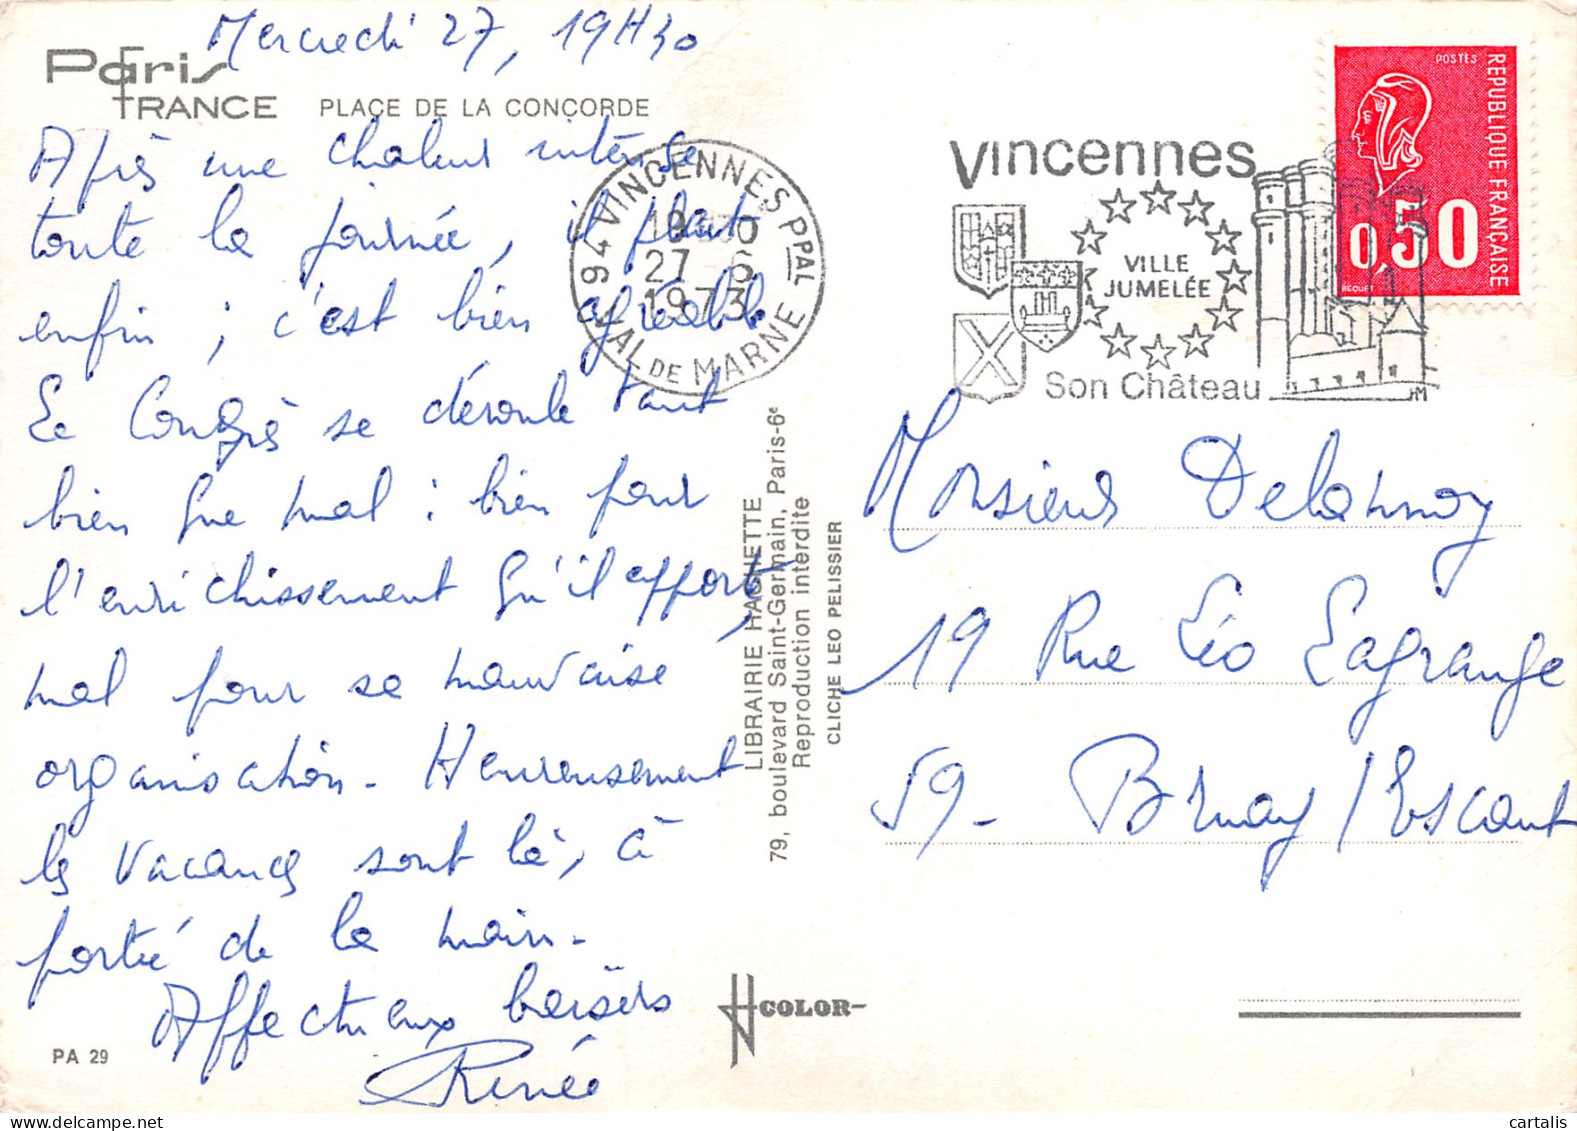 Mercredi 27, 19H30
Paris
FRANCE PLACE DE LA CONCORDE
Après une chaleur intense
toute la journée, il pleut
enfin ; c'est bien agréable
Le Congrès se déroule tant
bien que mal : bien pour
l'enrichissement qu'il apporte,
mal pour sa mauvaise
organisation. Heureusement
les vacances sont là, à
portée de la main.
Affectueux baisers
Renée
PA 29
94 VINCENNES PPAL
27 - 6
1973
VAL DE MARNE
Vincennes
VILLE
JUMELÉE
Son Château
HM
POSTES
REPUBLIQUE FRANÇAISE
0,50
BEQUET
LIBRAIRIE HACHETTE
79, boulevard Saint-Germain, Paris-6e
Reproduction interdite
CLICHE LEO PELISSIER
COLOR
Monsieur Delannoy
19 Rue Léo Lagrange
59 - Bruay / Escaut
cartalis